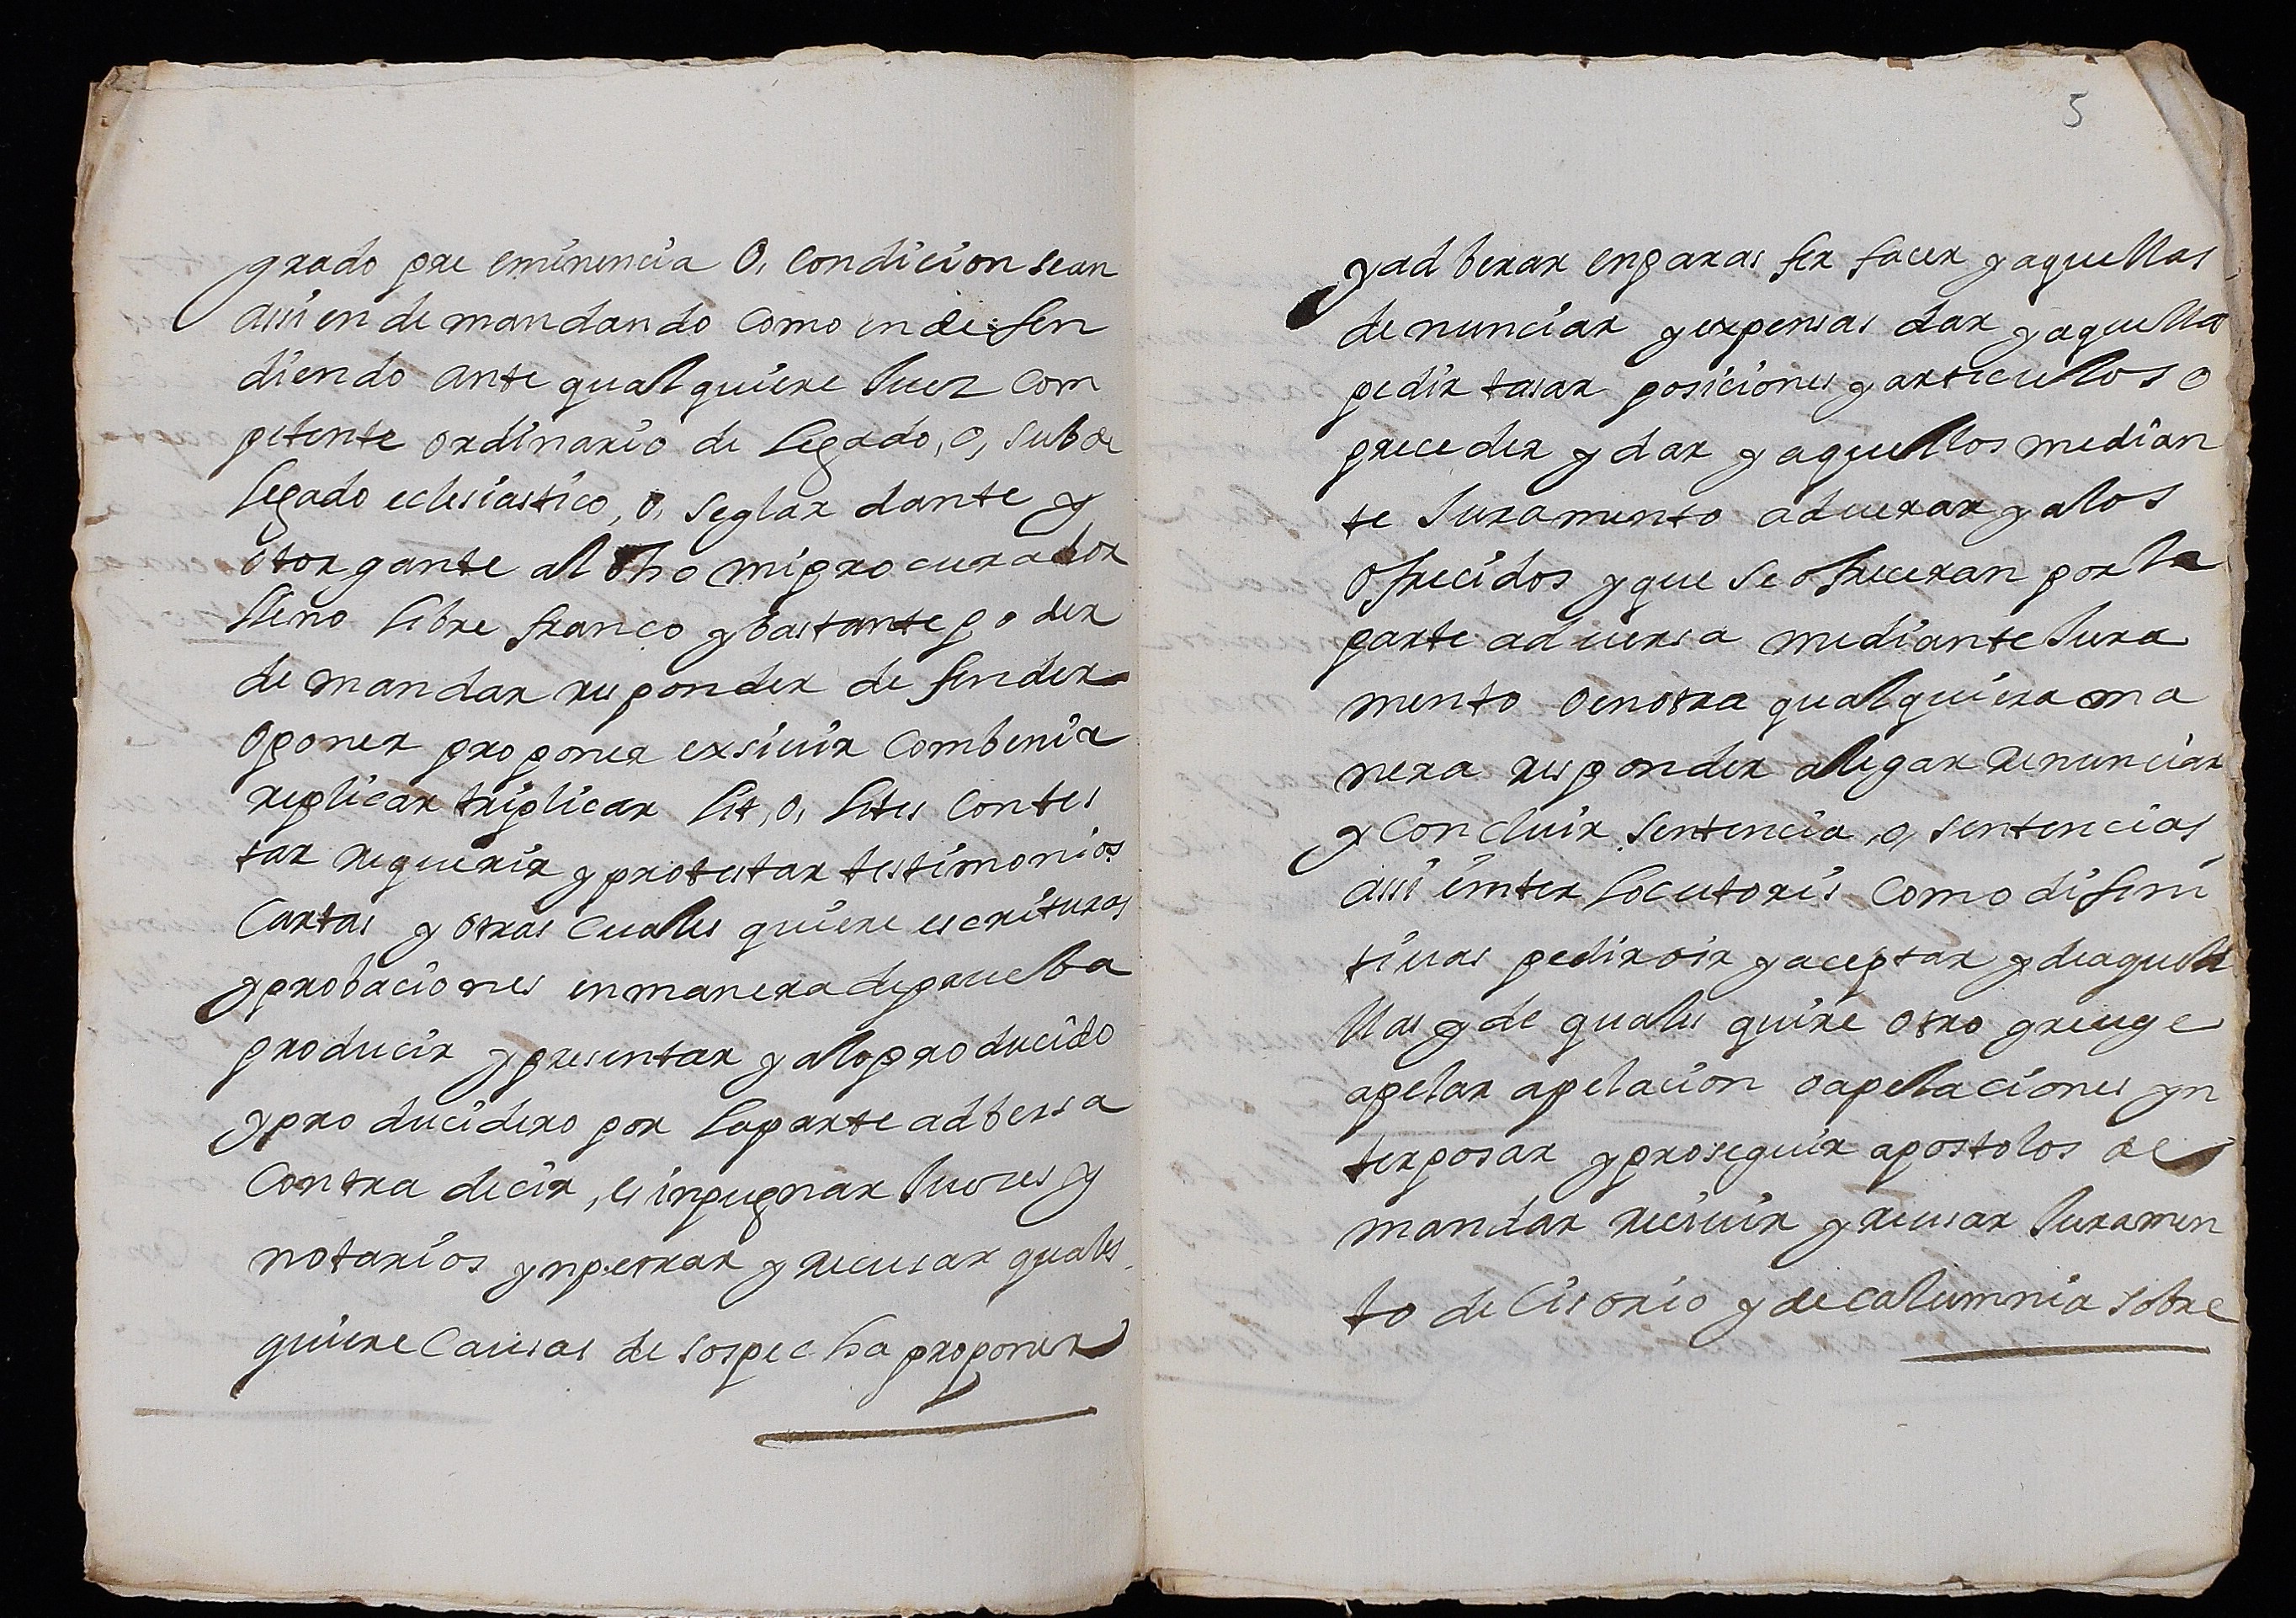 grado pre eminencia O, condicion sean
assi en demandando como en defen
diendo ante qualquiere Juez com
petente ordinario de legado, o, subde
legado eclesiastico, o, seglar dante y
otorgante al dho mi procurador
lleno libre franco y bastante poder
de mandar responder defender
oponer proponer exsiuir combenir
replicar triplicar lit, o, lites contes
tar requerir y protestar testimonios
Cartas y otras cuales quiere escrituras
y probaciones en manera de prueba
producir y presentar y a lo producido
y producidero por la parte adbersa
Contra decir, e inpugnar Jueces y
notarios ynpetrar y recusar quales
quiere Causas de sospecha proponer
5
y adberar enparas fer facer y aquellas
denunciar y expensas dar y aquellas
pedir tasar posiciones y articullos o
preceder y dar y aquellos median
te Juramento aduerar y a los
ofrecidos y que se ofreceran por la
parte aduersa mediante Jura
mento o en otra qualquiera ma
nera responder allegar renunciar
y concluir sentencia, o, sentencias
assi imter locutoris como difini
tiuas pedir oir y aceptar y de aque
llas y de quales quire otro greuge
apelar apelacion o apelaciones yn
terposar y proseguir apostolos de
mandar reciuir y recusar Juramen
to de Cisorio y de calumnia sobre